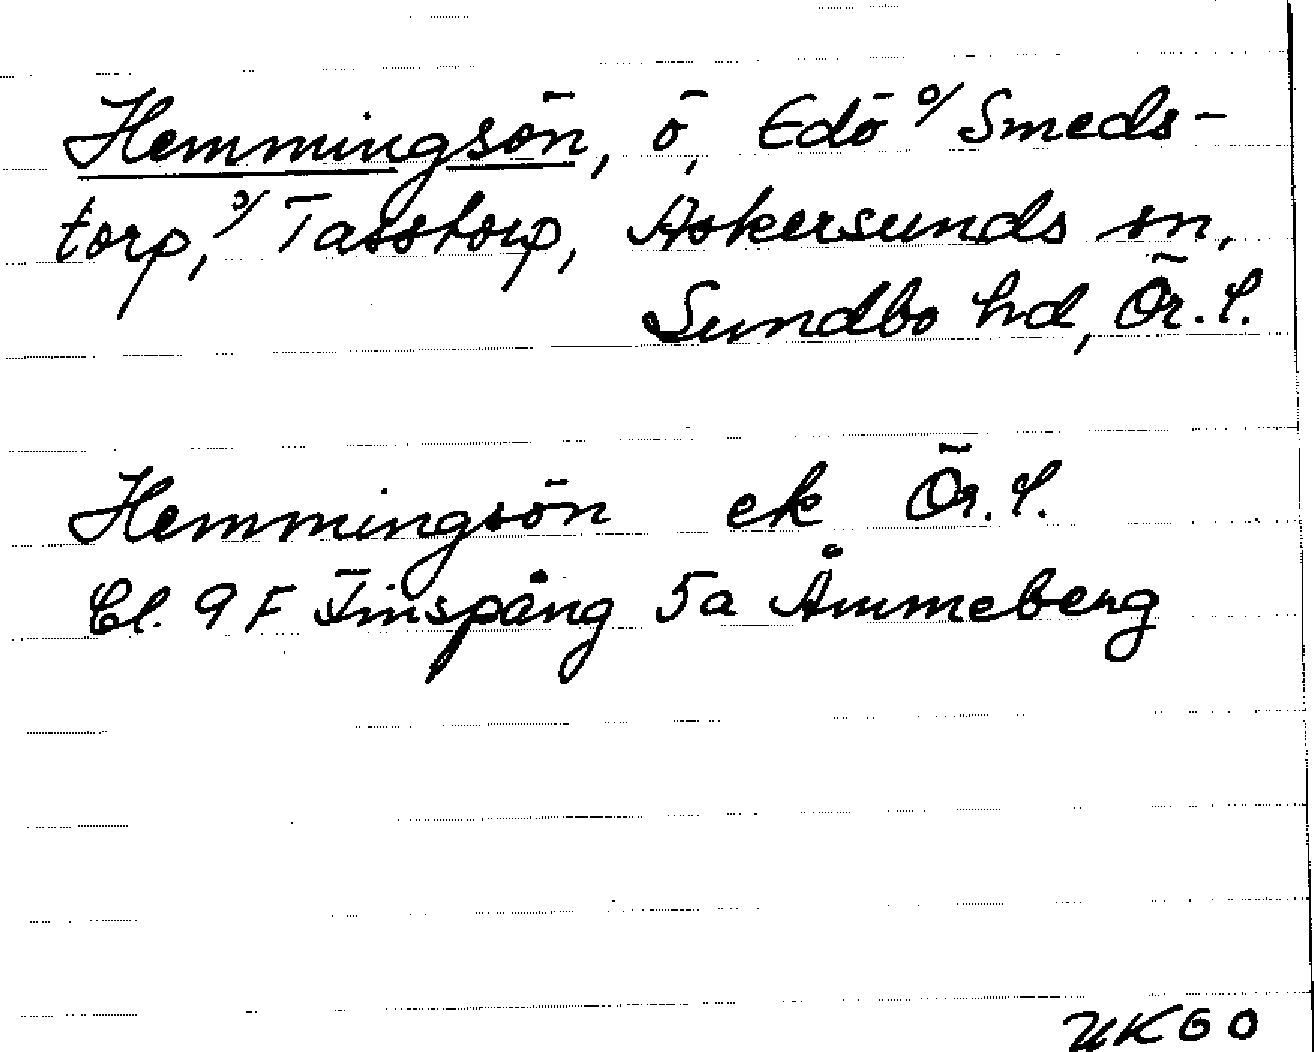 Hemmingsön, ö, Edö o/ Smeds-
torp, o/ Tasstorp, Askersunds sn,
Sundbo hd, Ör. l.
Hemmingsön ek Ör. l.
Bl. 9 F Finspång 5a Åmmeberg
UK60